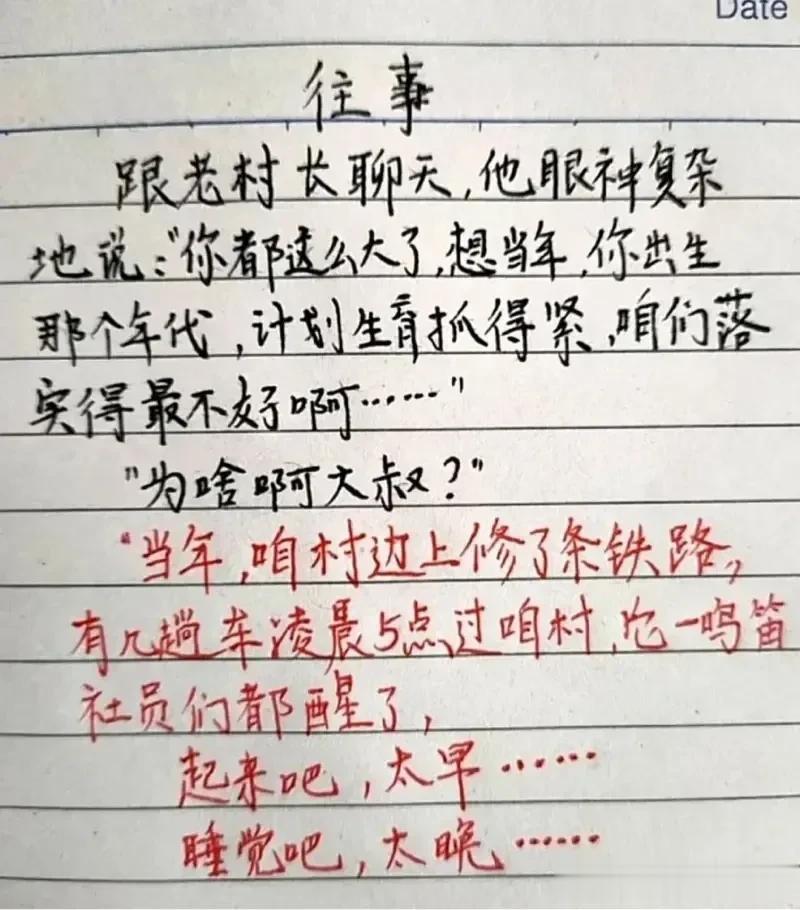 Date
往事
跟老村长聊天,他眼神复杂
地说:"你都这么大了,想当年,你出生
那个年代,计划生育抓得紧,咱们落
实得最不好啊……"
"为啥啊大叔?"
"当年,咱村边上修了条铁路,
有几趟车凌晨5点过咱村,它一鸣笛
社员们都醒了,
起来吧,太早……
睡觉吧,太晚……